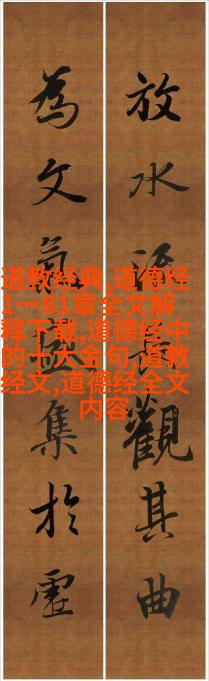 放水長觀其曲
為文氣盛集於虛
道教经典,道德经
1一81章全文解
释下载,道德经中
的十大金句,道教
经文,道德经全文
内容